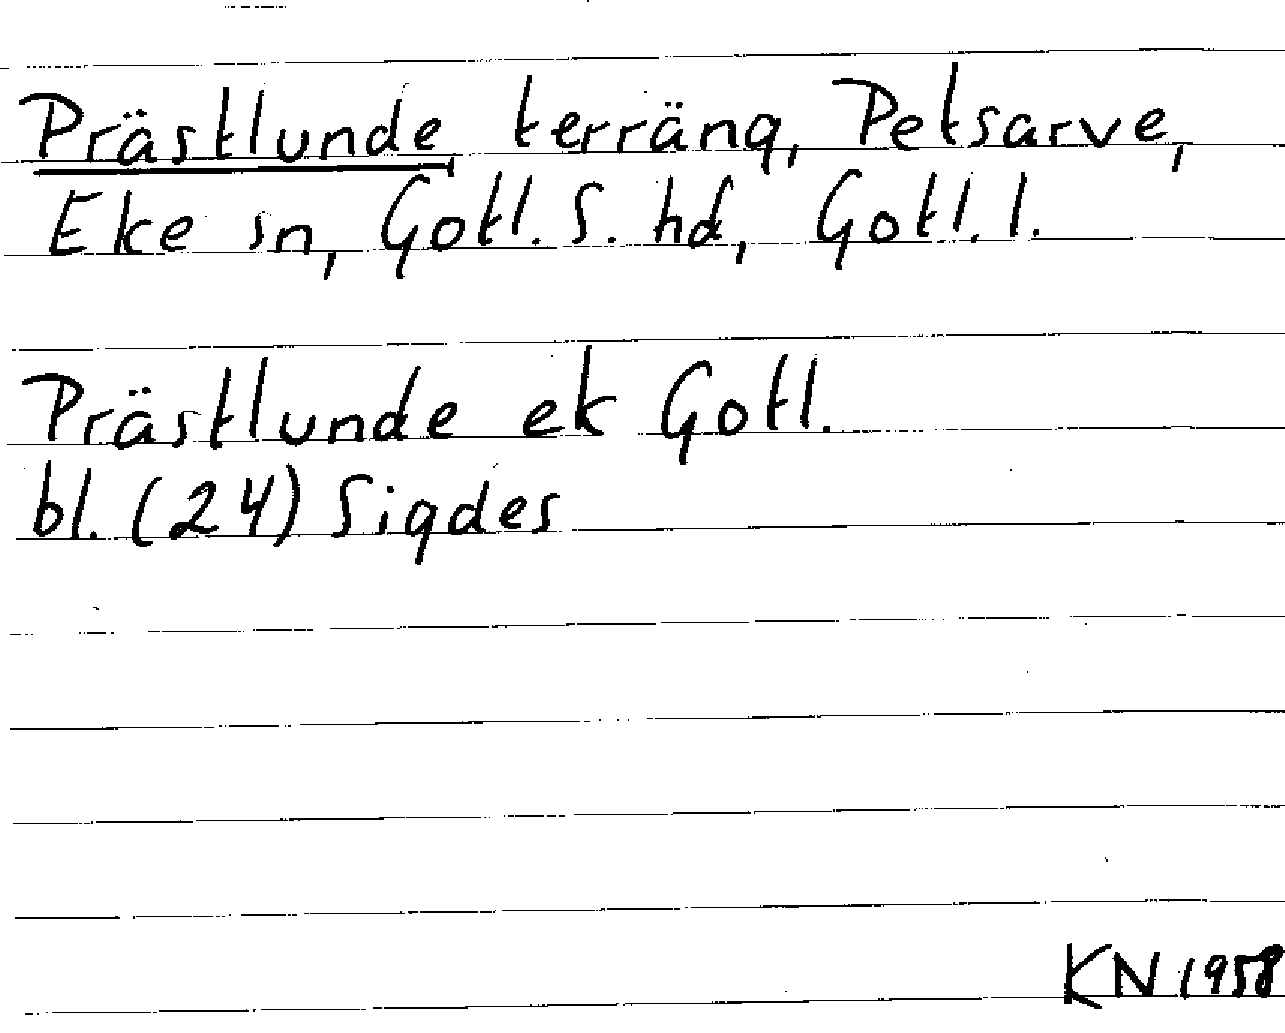 Prästlunde terräng, Petsarve,
Eke sn, Gotl. S. hd, Gotl. l.
Prästlunde ek Gotl.
bl. (24) Sigdes
KN 1958